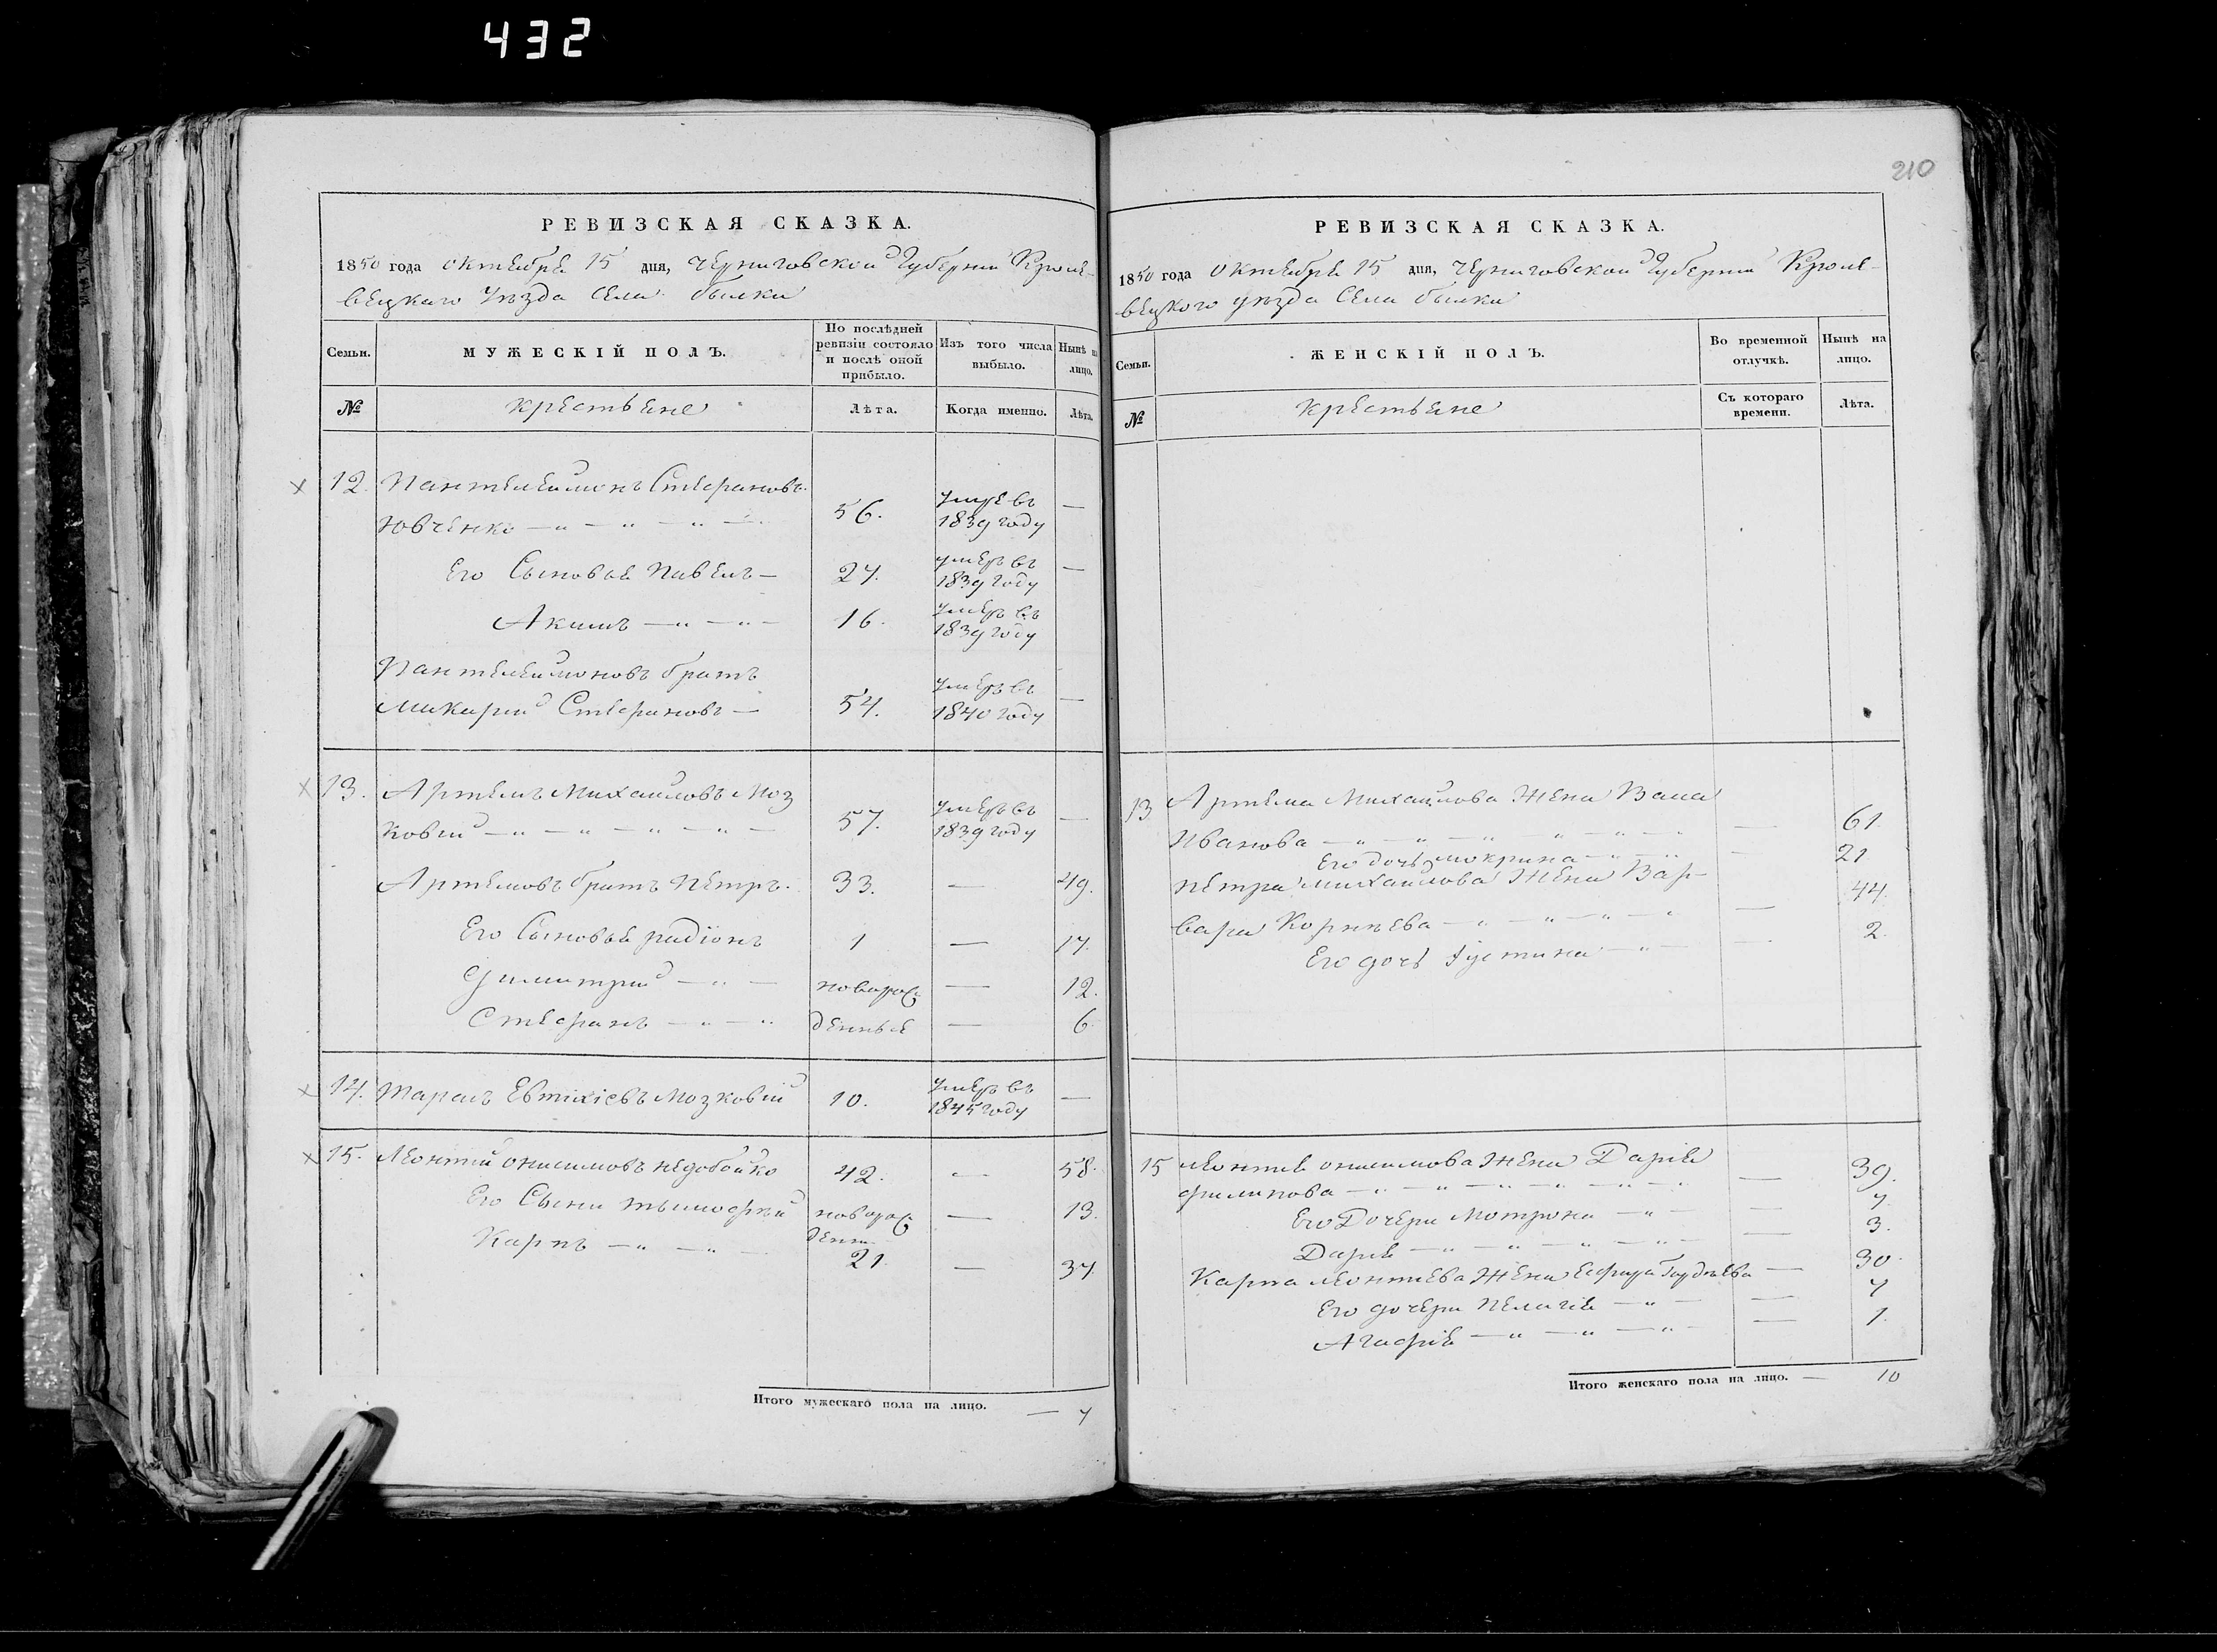 432
210
РЕВИЗСКАЯ СКАЗКА.
1850 года октября 15 дня, Черниговской Губернии Кроле-
вецкаго уезда Села быстрика
Семьи.
МУЖЕСКІЙ ПОЛЪ.
По послѣдней ревизіи состояло и послѣ оной прибыло.
Изъ того числа выбыло.
Нынѣ на лицо.
№
крестьяне
Лѣта.
Когда именно.
Лѣта.
12. Пантелеимонъ Стефановъ
Ювченко — „ — „ — „ — 56. умре въ 1839 году —
Его Сыновья Павелъ — 27. умеръ въ 1839 году —
Акимъ — „ — „ — 16. умеръ въ 1839 году
Пантелеимоновъ братъ
Макарий Стефановъ — 54. умеръ въ 1840 году —
13. Артемъ Михайловъ Моз
ковий — „ — „ — „ — „ — 57. умеръ въ 1839 году —
Артемовъ братъ Петръ. 33. — 49.
Его Сыновья радіонъ 1 — 17.
Димитрий — „ — новорож — 12.
Стефанъ — „ — „ денные — 6.
14. Тарасъ Евтихіевъ Мозковій 10. умеръ въ 1845 году —
15. Леонтий онисимовъ недобойко 42. — 58.
Его Сыны тымофей новорож — 13.
денн.
Карпъ — „ — „ — 21. — 37.
Итого мужескаго пола на лицо. — 7
РЕВИЗСКАЯ СКАЗКА.
1850 года октября 15 дня, Черниговской Губернии Кроле-
вецкого уезда Села
Семьи.
ЖЕНСКІЙ ПОЛЪ.
Во временной отлучкѣ.
Нынѣ на лицо.
№
крестьяне
Съ котораго времени.
Лѣта.
13 Артема Михайлова Жена
Иванова — „ — „ — „ — „ — „ — „ — 61.
Его дочь мокрина — „ — „ — 21
Петра михайлова Жена Вар-
вара Корнѣева — „ — „ — „ — „ — 44.
Его дочь Іустина — „ — — 2.
15 Леонтия онисимова Жена Дарія
филипова — „ — „ — „ — „ — „ — „ — 39.
Его Дочери Мотрона — „ — — 7.
Дарія — „ — „ — „ — „ — — 3.
Карпа леонтиева Жена Гордѣева — 30.
Его дочери Пелагія — „ — — 7
Агафія — „ — „ — „ — — 1.
Итого женскаго пола на лицо. — 10